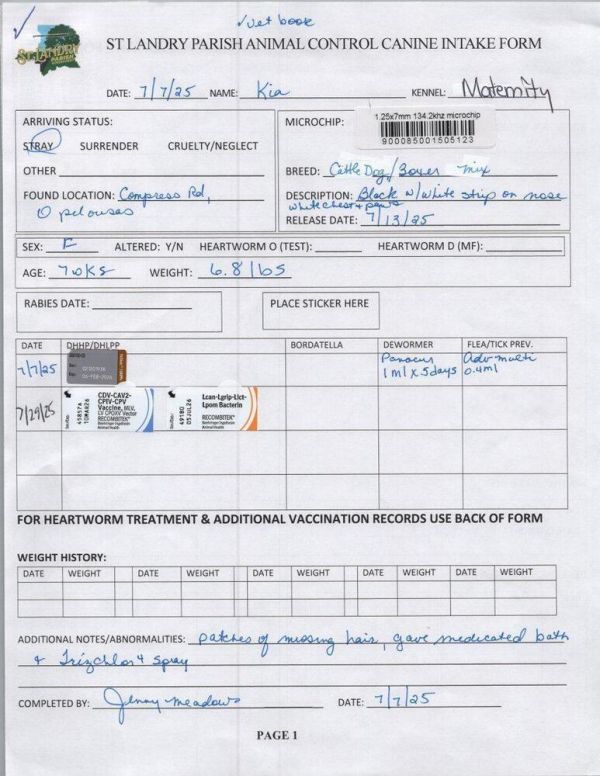 ✓vet book
ST LANDRY PARISH
ST LANDRY PARISH ANIMAL CONTROL CANINE INTAKE FORM
DATE: 7/7/25 NAME: Kia KENNEL: Maternity
ARRIVING STATUS:
STRAY SURRENDER CRUELTY/NEGLECT
OTHER
FOUND LOCATION: Compress Rd,
Opelousas
MICROCHIP: 1.25x7mm 134.2khz microchip
900085001505123
BREED: Cattle Dog/Boxer mix
DESCRIPTION: Black w/white strip on nose
white chest & paws
RELEASE DATE: 7/13/25
SEX: F ALTERED: Y/N HEARTWORM O (TEST): HEARTWORM D (MF):
AGE: 7wks WEIGHT: 6.8 lbs
RABIES DATE:
PLACE STICKER HERE
DATE DHHP/DHLPP BORDATELLA DEWORMER FLEA/TICK PREV.
7/7/25 Panacur Adv multi
1 ml x 5 days 0.4ml
7/29/25
CDV-CAV2-
CPIV-CPV
Vaccine, MLV,
LV CPOXV Vector
RECOMBITEK
Boehringer Ingelheim
Animal Health
45857A
10MAR26
Lcan-Lgrip-Lict-
Lpom Bacterin
RECOMBITEK
Boehringer Ingelheim
Animal Health
4918Q
05JUL26
FOR HEARTWORM TREATMENT & ADDITIONAL VACCINATION RECORDS USE BACK OF FORM
WEIGHT HISTORY:
DATE WEIGHT DATE WEIGHT DATE WEIGHT DATE WEIGHT DATE WEIGHT
ADDITIONAL NOTES/ABNORMALITIES: patches of missing hair, gave medicated bath
& Trizchlor 4 spray
COMPLETED BY: Jenny Meadows DATE: 7/7/25
PAGE 1